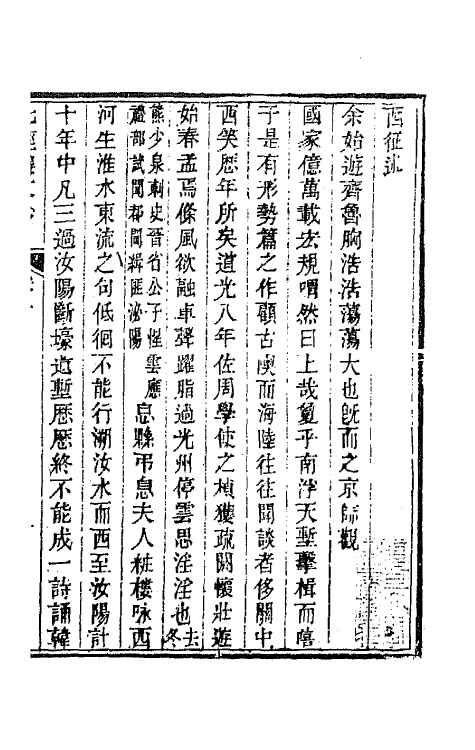 西征述
余始遊齊魯胸浩浩蕩蕩大也旣而之京師觀
國家億萬載宏規喟然曰上哉夐乎南浮天塹擊楫而喑
于是有形勢篇之作顧古陝而海陸往往聞談者侈關中
西笑歴年所矣道光八年佐周學使之楨獲疏關懷壯遊
始春孟焉條風欲融車聲躍脂過光州停雲思淫淫也去冬
熊少泉刺史晉省公子惺雲應
禮部試聞都闑緝匪泌陽
息縣弔息夫人粧樓咏西
河生淮水東流之句低徊不能行溯汝水而西至汝陽計
十年中凡三過汝陽斷壕道塹歴歴終不能成一詩誦韓